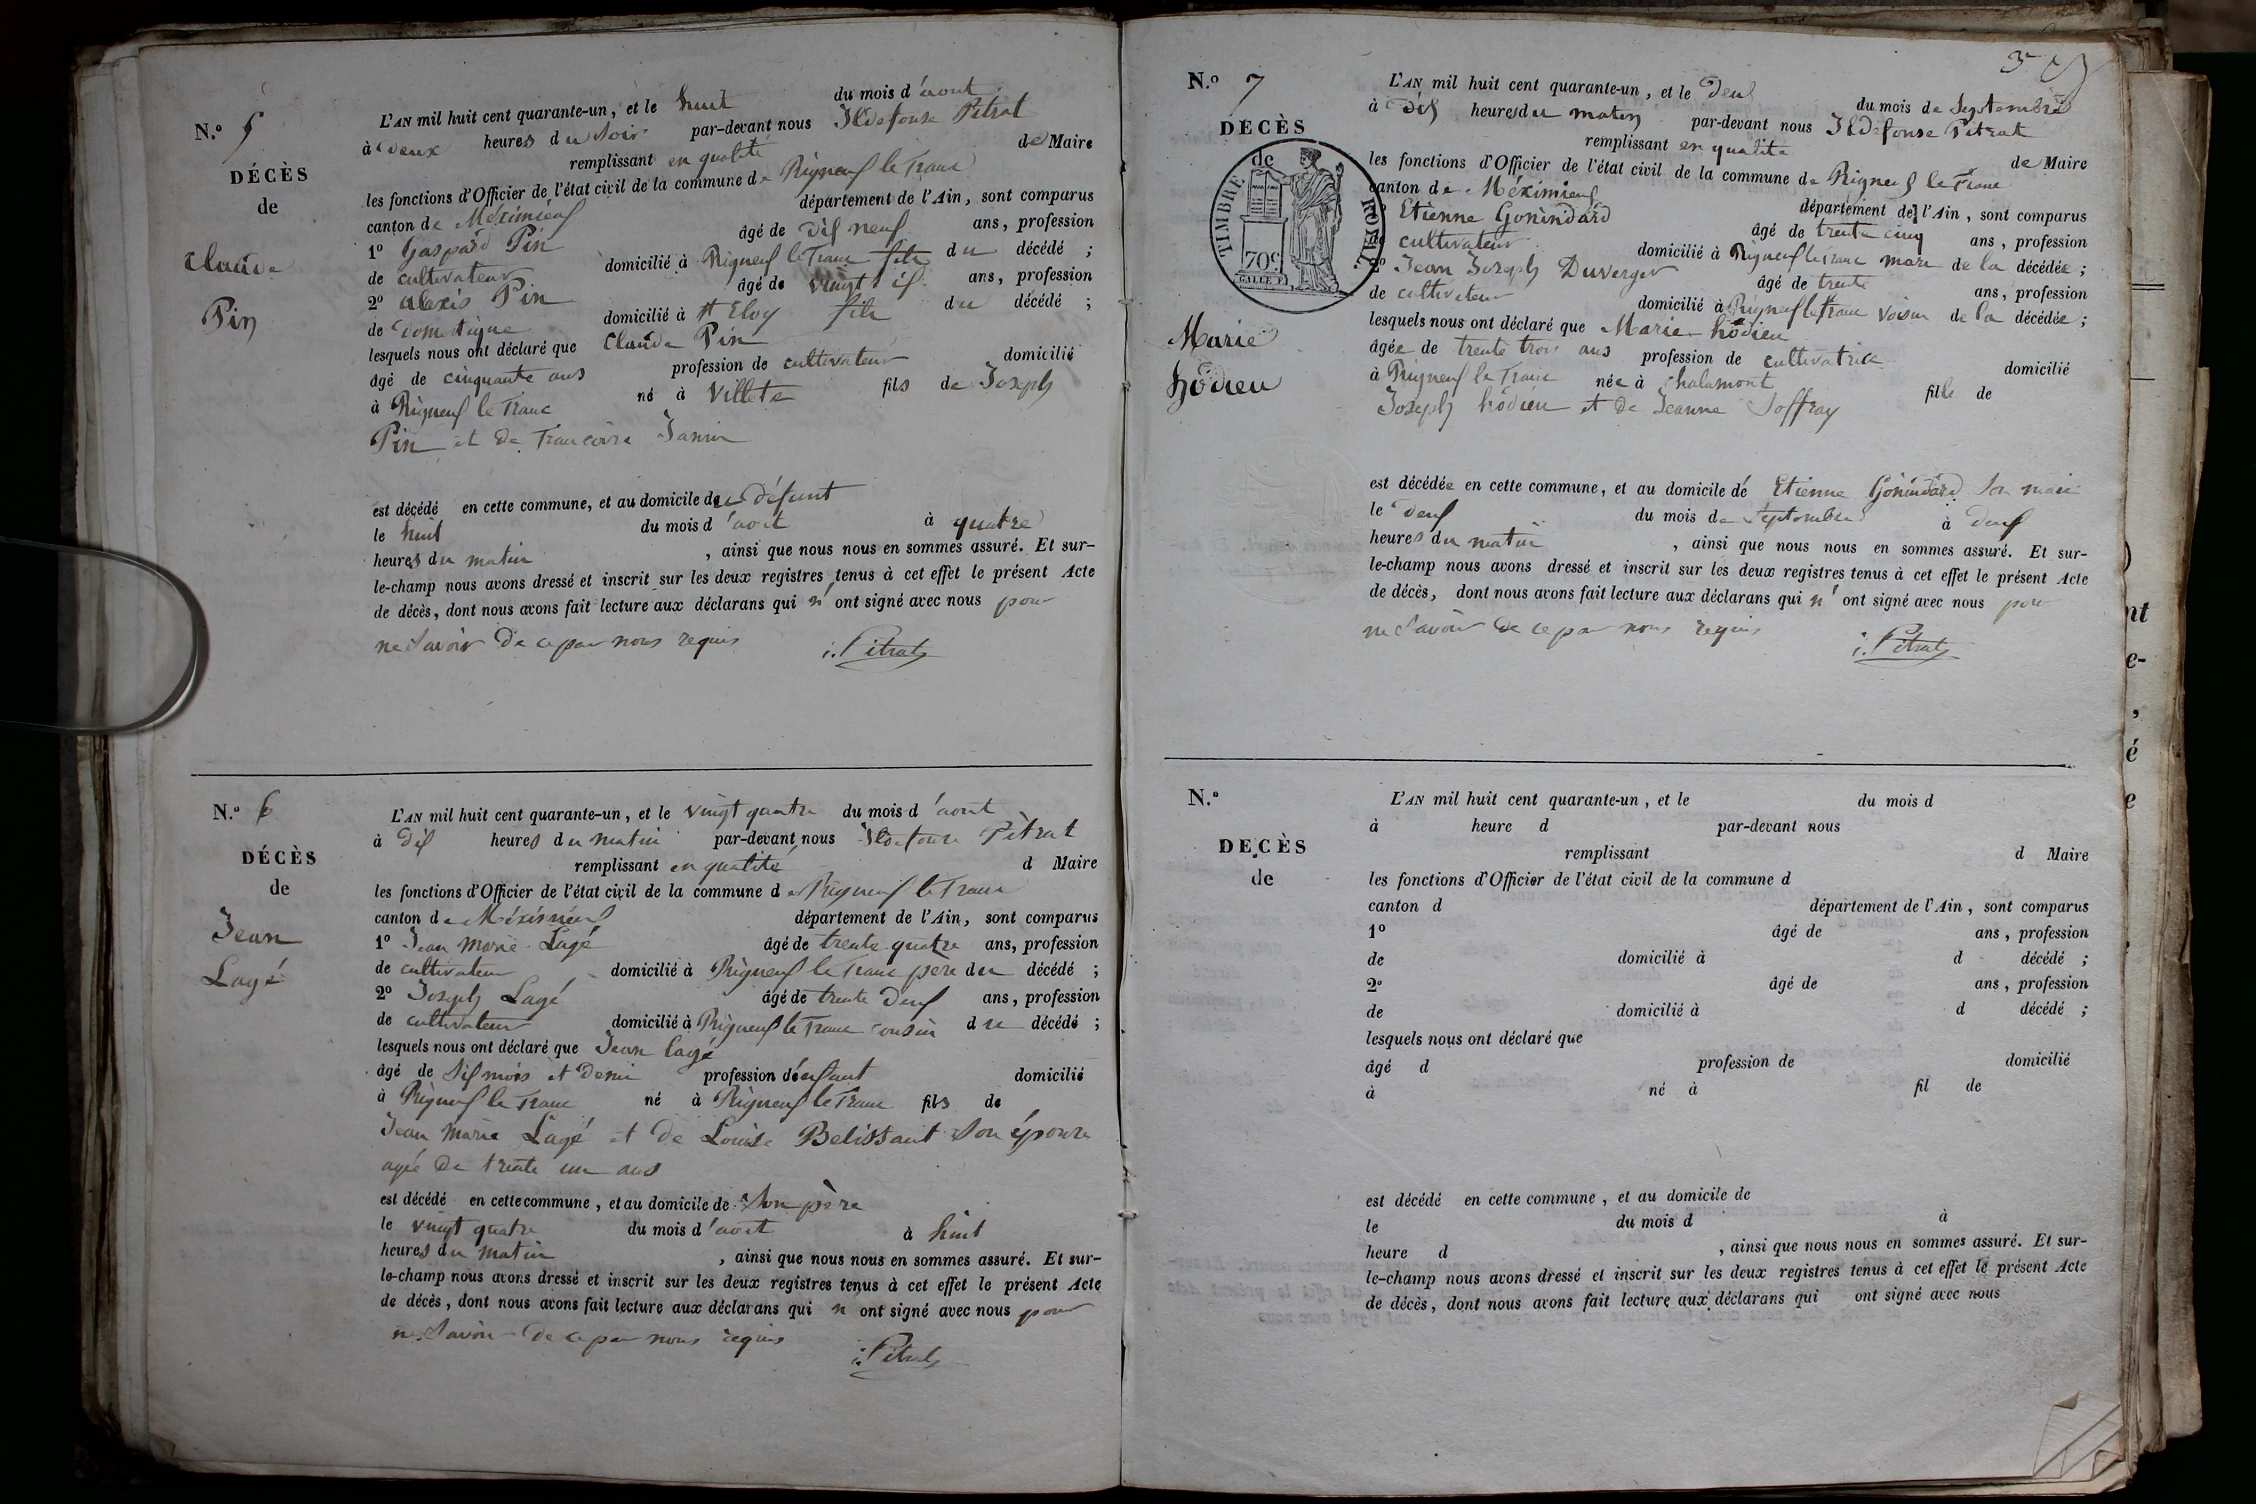 N.º 5
DÉCÈS
de
Claude
Pin
L'AN mil huit cent quarante-un, et le huit du mois d'aout
à deux heures du soir par-devant nous Ildefonse Pitrat
remplissant en qualité de Maire
les fonctions d'Officier de l'état civil de la commune de Rigneux le franc
canton de Méximieux département de l'Ain, sont comparus
1º Gaspard Pin âgé de dix neuf ans, profession
de cultivateur domicilié à Rigneux le franc fils du décédé ;
2º alexis Pin âgé de vingt six ans, profession
de domestique domicilié à St Eloy fils du décédé ;
lesquels nous ont déclaré que Claude Pin
âgé de cinquante ans profession de cultivateur domicilié
à Rigneux le franc né à Villete fils de Joseph
Pin et de francoise Janin
est décédé en cette commune, et au domicile du défunt
le huit du mois d'aout à quatre
heures du matin , ainsi que nous nous en sommes assuré. Et sur-
le-champ nous avons dressé et inscrit sur les deux registres tenus à cet effet le présent Acte
de décès, dont nous avons fait lecture aux déclarans qui n'ont signé avec nous pour
ne savoir de ce par nous requis
i. Pitrat
N.º 6
DÉCÈS
de
Jean
Lagé
L'AN mil huit cent quarante-un, et le vingt quatre du mois d'aout
à dix heures du matin par-devant nous Ildefonse Pitrat
remplissant en qualité d Maire
les fonctions d'Officier de l'état civil de la commune de Rigneux le franc
canton de Méximieux département de l'Ain, sont comparus
1º Jean Marie Lagé âgé de trente quatre ans, profession
de cultivateur domicilié à Rigneux le franc père du décédé ;
2º Joseph Lagé âgé de trente deux ans, profession
de cultivateur domicilié à Rigneux le franc cousin du décédé ;
lesquels nous ont déclaré que Jean Lagé
âgé de six mois et demi profession d'enfant domicilié
à Rigneux le franc né à Rigneux le franc fils de
Jean Marie Lagé et de Louise Belissant son épouse
agée de trente un ans
est décédé en cette commune, et au domicile de son père
le vingt quatre du mois d'aout à huit
heures du matin , ainsi que nous nous en sommes assuré. Et sur-
le-champ nous avons dressé et inscrit sur les deux registres tenus à cet effet le présent Acte
de décès, dont nous avons fait lecture aux déclarans qui n ont signé avec nous pour
ne savoir de ce par nous requis
i. Pitrat
N.º 7
DÉCÈS
de
TIMBRE ROYAL.
70c
Marie
hôdieu
L'AN mil huit cent quarante-un, et le deux du mois de Septembre
à dix heures du matin par-devant nous Ildefonse Pitrat
remplissant en qualité de Maire
les fonctions d'Officier de l'état civil de la commune de Rigneux le franc
canton de Méximieux département de l'Ain, sont comparus
Etienne Gonindard âgé de trente cinq ans, profession
de cultivateur domicilié à Rigneux le franc mari de la décédée ;
2º Jean Joseph Duverger âgé de trente ans, profession
de cultivateur domicilié à Rigneux le franc voisin de la décédée ;
lesquels nous ont déclaré que Marie hôdieu
âgée de trente trois ans profession de cultivatrice domicilié
à Rigneux le franc née à Chalamont fille de
Joseph hôdieu et de Jeanne Joffray
est décédée en cette commune, et au domicile de Etienne Gonindard son mari
le deux du mois de Septembre à deux
heures du matin , ainsi que nous nous en sommes assuré. Et sur-
le-champ nous avons dressé et inscrit sur les deux registres tenus à cet effet le présent Acte
de décès, dont nous avons fait lecture aux déclarans qui n'ont signé avec nous pour
ne savoir de ce par nous requis
i. Pitrat
N.º
DÉCÈS
de
L'AN mil huit cent quarante-un, et le du mois d
à heure d par-devant nous
remplissant d Maire
les fonctions d'Officier de l'état civil de la commune d
canton d département de l'Ain, sont comparus
1º âgé de ans, profession
de domicilié à d décédé ;
2º âgé de ans, profession
de domicilié à d décédé ;
lesquels nous ont déclaré que
âgé d profession de domicilié
à né à fil de
est décédé en cette commune, et au domicile de
le du mois d à
heure d , ainsi que nous nous en sommes assuré. Et sur-
le-champ nous avons dressé et inscrit sur les deux registres tenus à cet effet le présent Acte
de décès, dont nous avons fait lecture aux déclarans qui ont signé avec nous